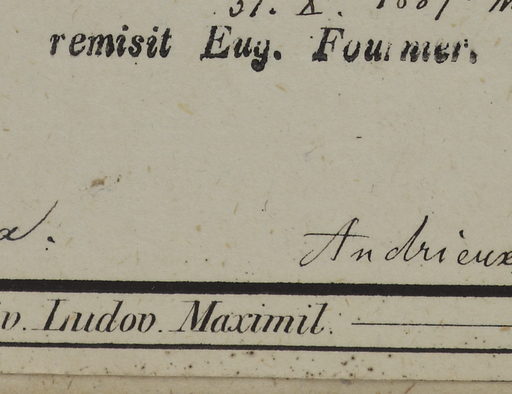 31. X. 1887
remisit Eug. Fournier.
Andrieux
v. Ludov. Maximil.